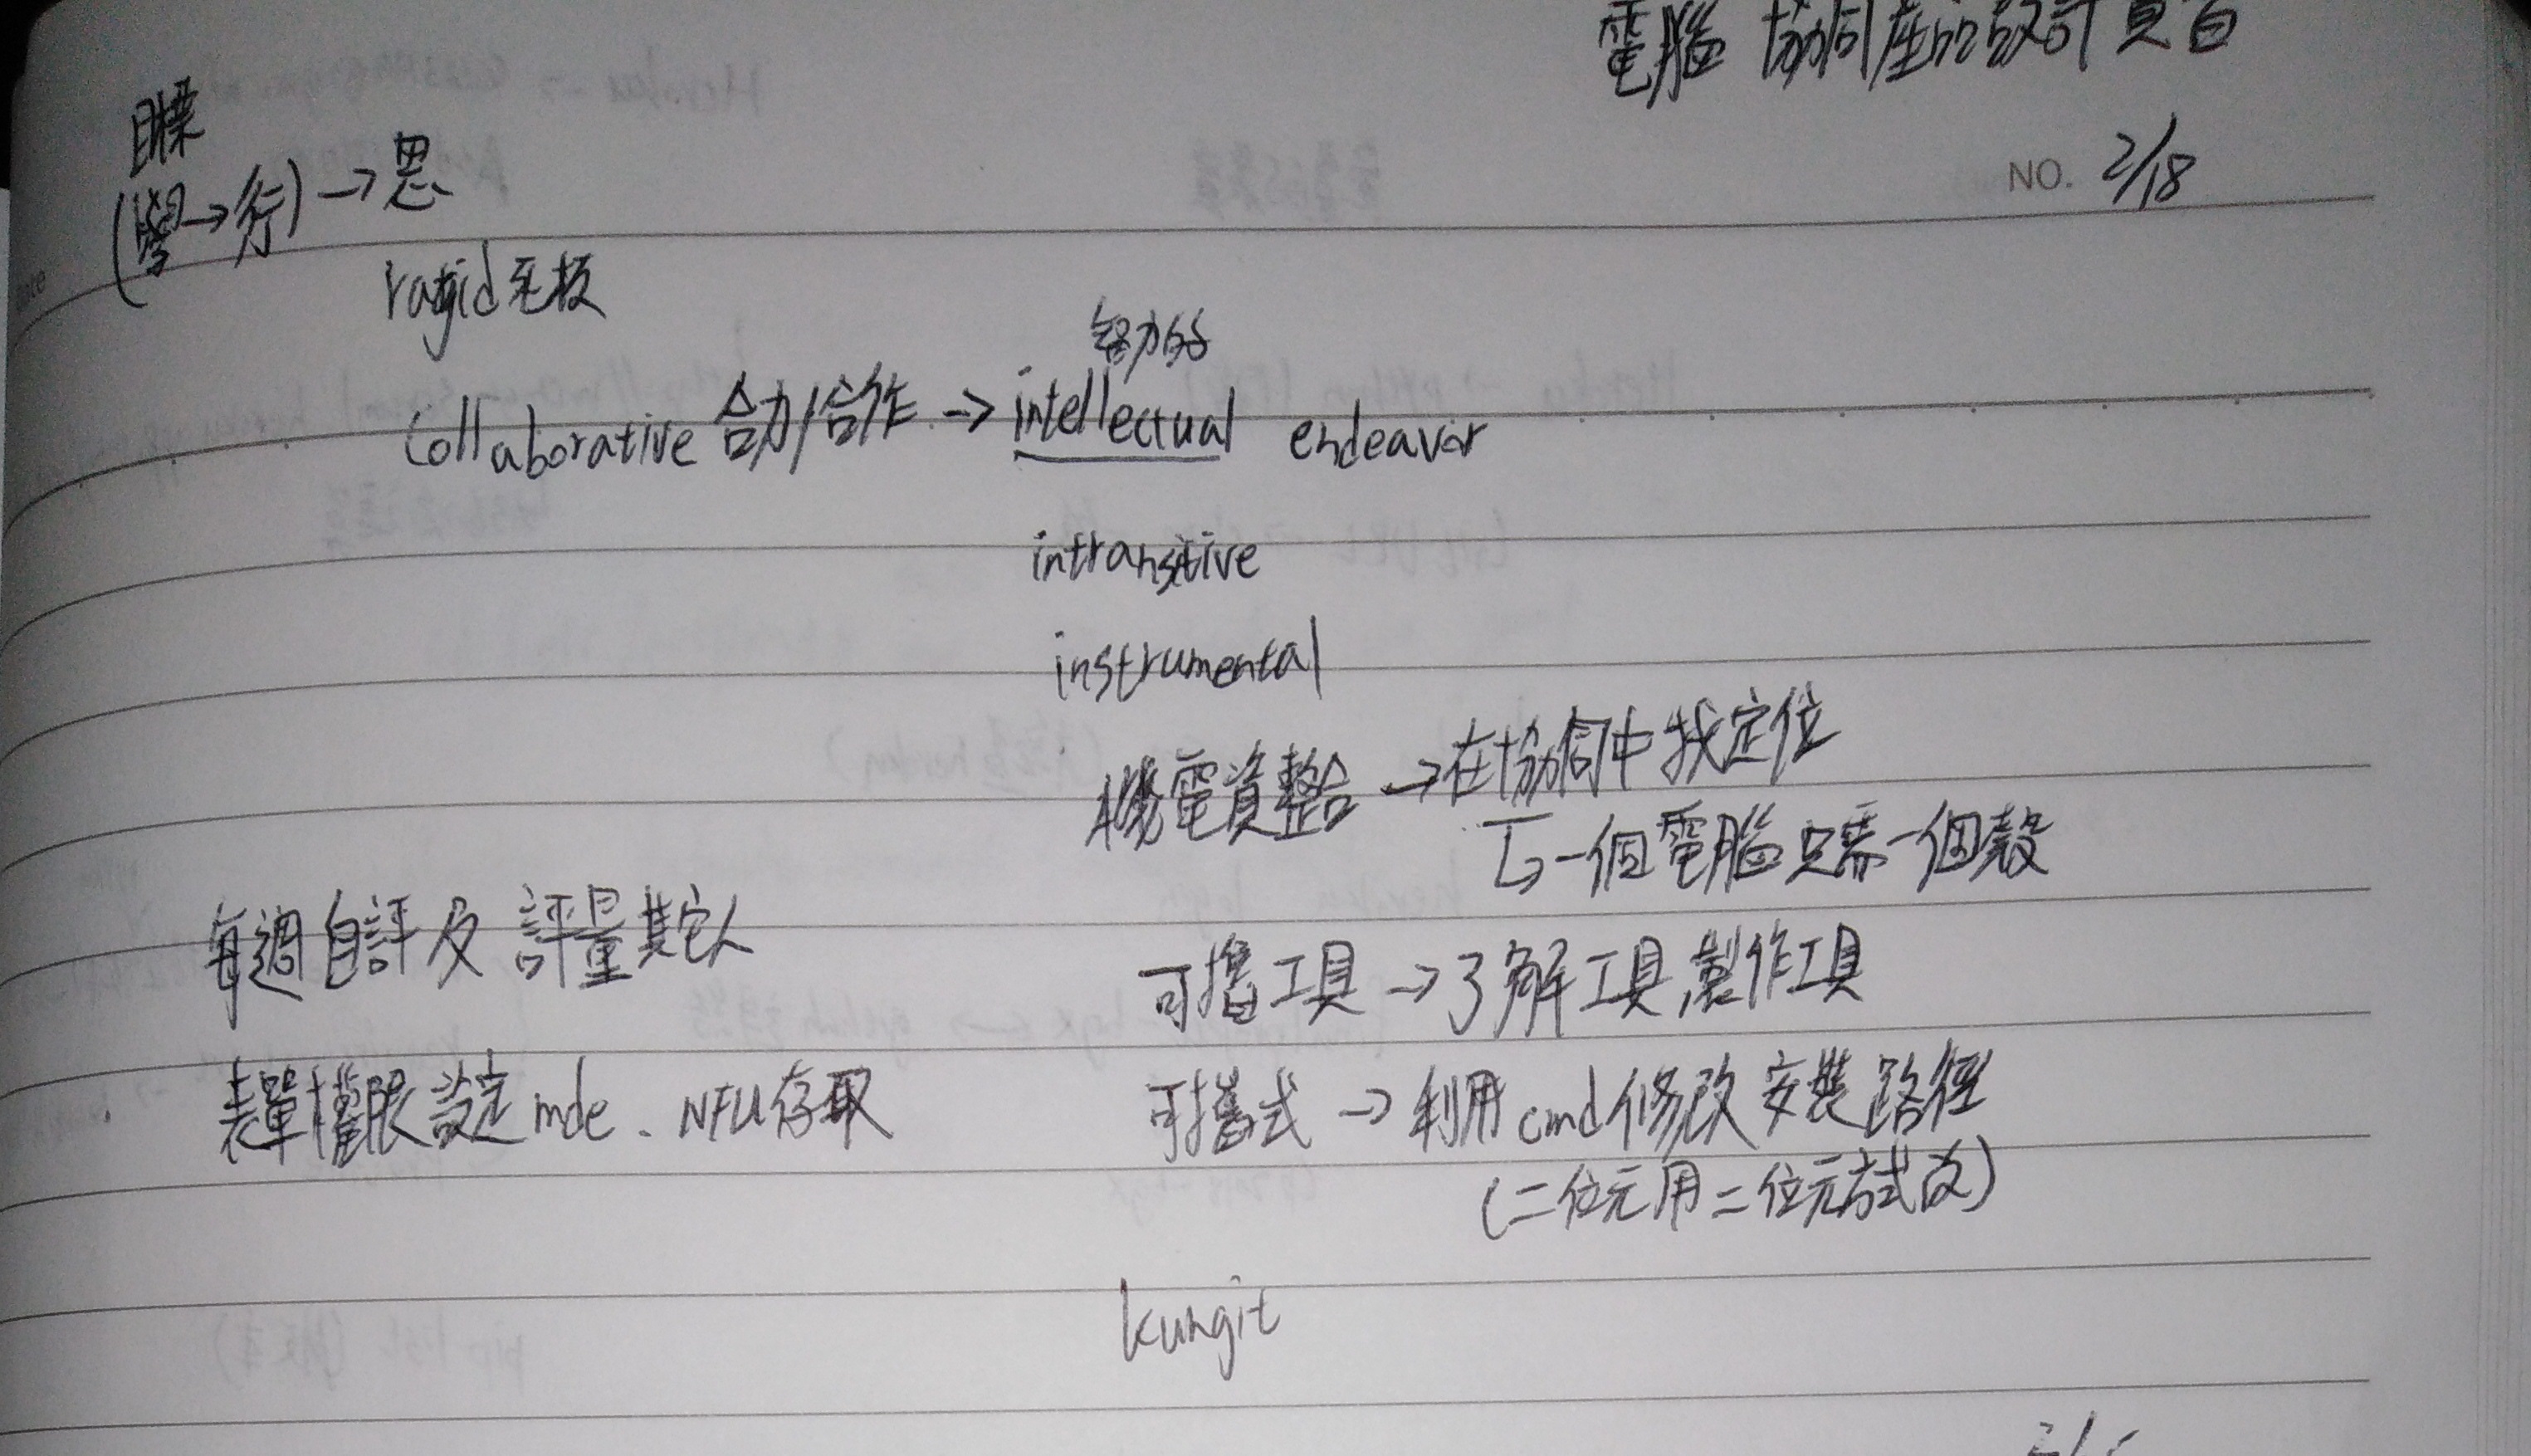 電腦 協同產品設計實習
NO. 2/18
(學→行)→思
ragid 死板
智力的
collaborative 合力/合作 → intellectual endeavor
intransitive
instrumental
機電資整合 → 在協同中找定位
↳ 一個電腦只需一個殼
每週自評及 評量其它人
可攜工具 → 了解工具,製作工具
表單權限設定 mde、NFU存取
可攜式 → 利用cmd修改安裝路徑
(二位元用二位元方式改)
kungit